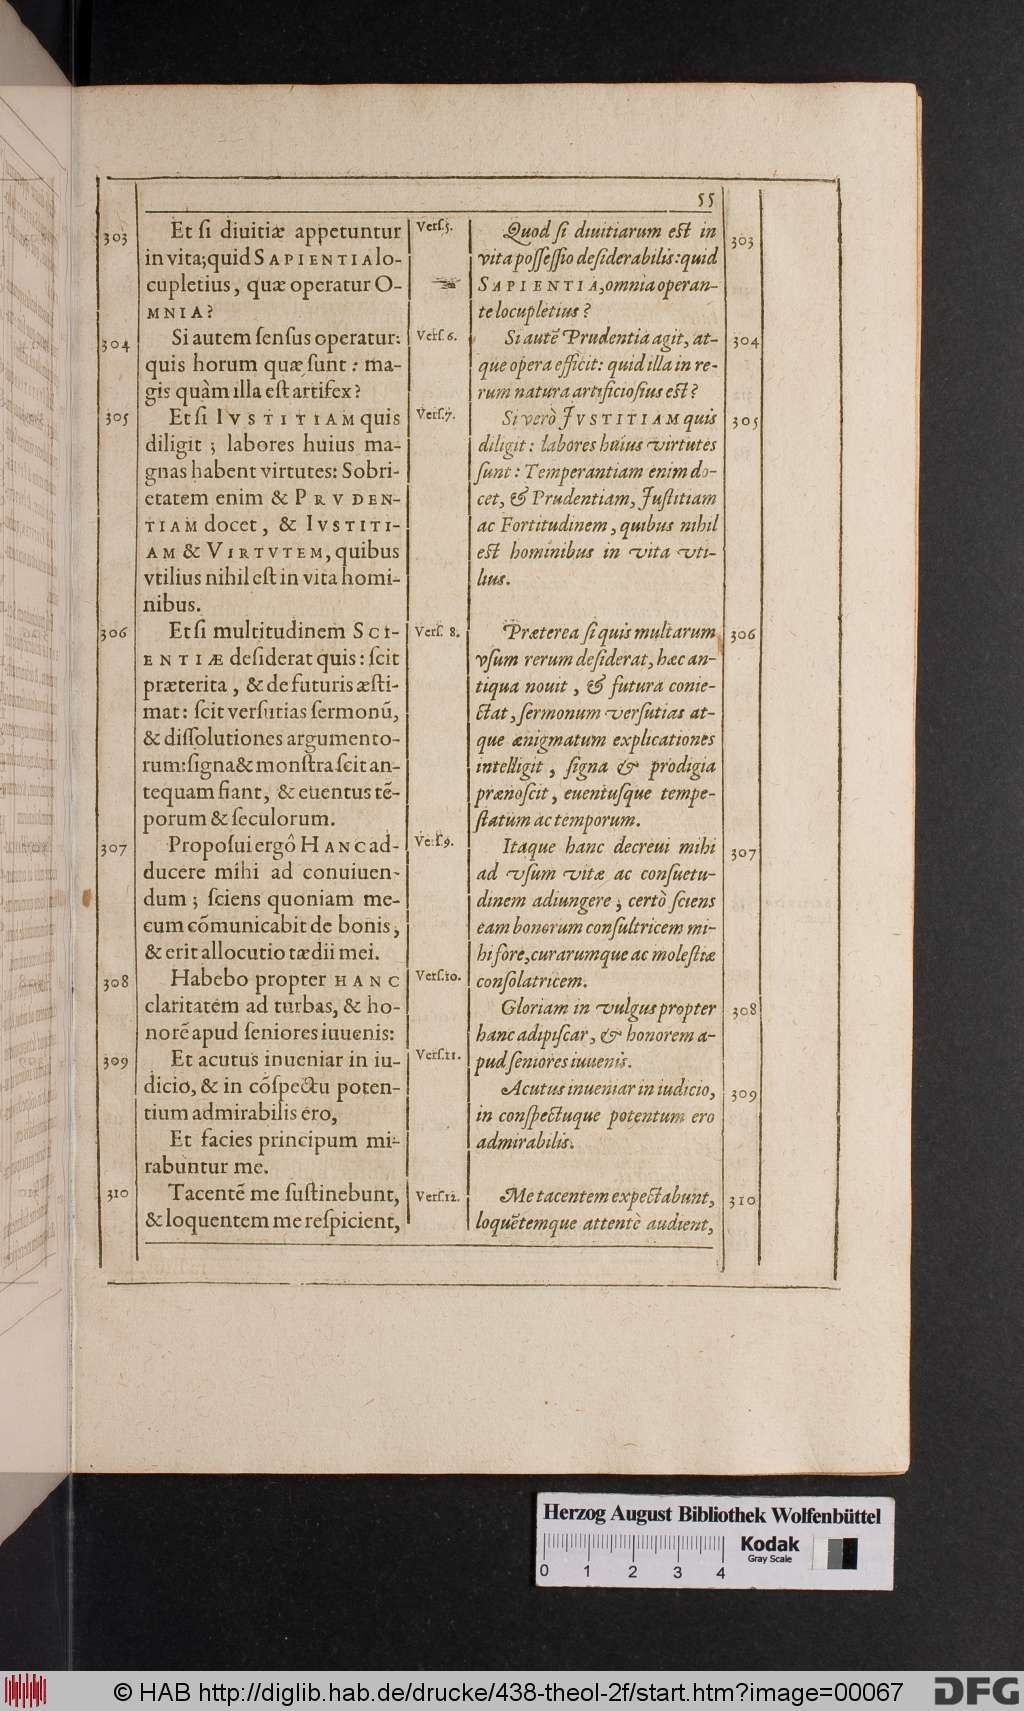 55
303
Et ſi diuitiæ appetuntur
in vita; quid SAPIENTIA lo-
cupletius, quæ operatur O-
MNIA?
304
Si autem ſenſus operatur:
quis horum quæ ſunt: ma-
gis quàm illa eſt artifex?
305
Et ſi IVSTITIAM quis
diligit; labores huius ma-
gnas habent virtutes: Sobri-
etatem enim & PRVDEN-
TIAM docet, & IVSTITI-
AM & VIRTVTEM, quibus
vtilius nihil eſt in vita homi-
nibus.
306
Et ſi multitudinem SCI-
ENTIÆ deſiderat quis: ſcit
præterita, & de futuris æſti-
mat: ſcit verſutias ſermonũ,
& diſſolutiones argumento-
rum: ſigna & monſtra ſcit an-
tequam fiant, & euentus tẽ-
porum & ſeculorum.
307
Propoſui ergô HANC ad-
ducere mihi ad conuiuen-
dum; ſciens quoniam me-
cum cõmunicabit de bonis,
& erit allocutio tædii mei.
308
Habebo propter HANC
claritatem ad turbas, & ho-
norẽ apud ſeniores iuuenis:
309
Et acutus inueniar in iu-
dicio, & in cõſpectu poten-
tium admirabilis ero,
Et facies principum mi-
rabuntur me.
310
Tacentẽ me ſuſtinebunt,
& loquentem me reſpicient,
Verſ.5.
Verſ.6.
Verſ.7.
Verſ. 8.
Verſ.9.
Verſ.10.
Verſ.11.
Verſ.12.
Quod ſi diuitiarum eſt in
vita poſſeſſio deſiderabilis: quid
SAPIENTIA, omnia operan-
te locupletius?
303
Si autẽ Prudentia agit, at-
que opera efficit: quid illa in re-
rum natura artificioſius eſt?
304
Si verò IVSTITIAM quis
diligit: labores huius virtutes
ſunt: Temperantiam enim do-
cet, & Prudentiam, Juſtitiam
ac Fortitudinem, quibus nihil
eſt hominibus in vita vti-
lius.
305
Præterea ſi quis multarum
vſum rerum deſiderat, hæc an-
tiqua nouit, & futura conie-
ctat, ſermonum verſutias at-
que ænigmatum explicationes
intelligit, ſigna & prodigia
prænoſcit, euentuſque tempe-
ſtatum ac temporum.
306
Itaque hanc decreui mihi
ad vſum vitæ ac conſuetu-
dinem adiungere, certò ſciens
eam bonorum conſultricem mi-
hi fore, curarumque ac moleſtiæ
conſolatricem.
307
Gloriam in vulgus propter
hanc adipiſcar, & honorem a-
pud ſeniores iuuenis.
308
Acutus inueniar in iudicio,
in conſpectuque potentum ero
admirabilis.
309
Me tacentem expectabunt,
loquẽtemque attentè audient,
310
Herzog August Bibliothek Wolfenbüttel
Kodak
Gray Scale
0 1 2 3 4
© HAB http://diglib.hab.de/drucke/438-theol-2f/start.htm?image=00067
DFG